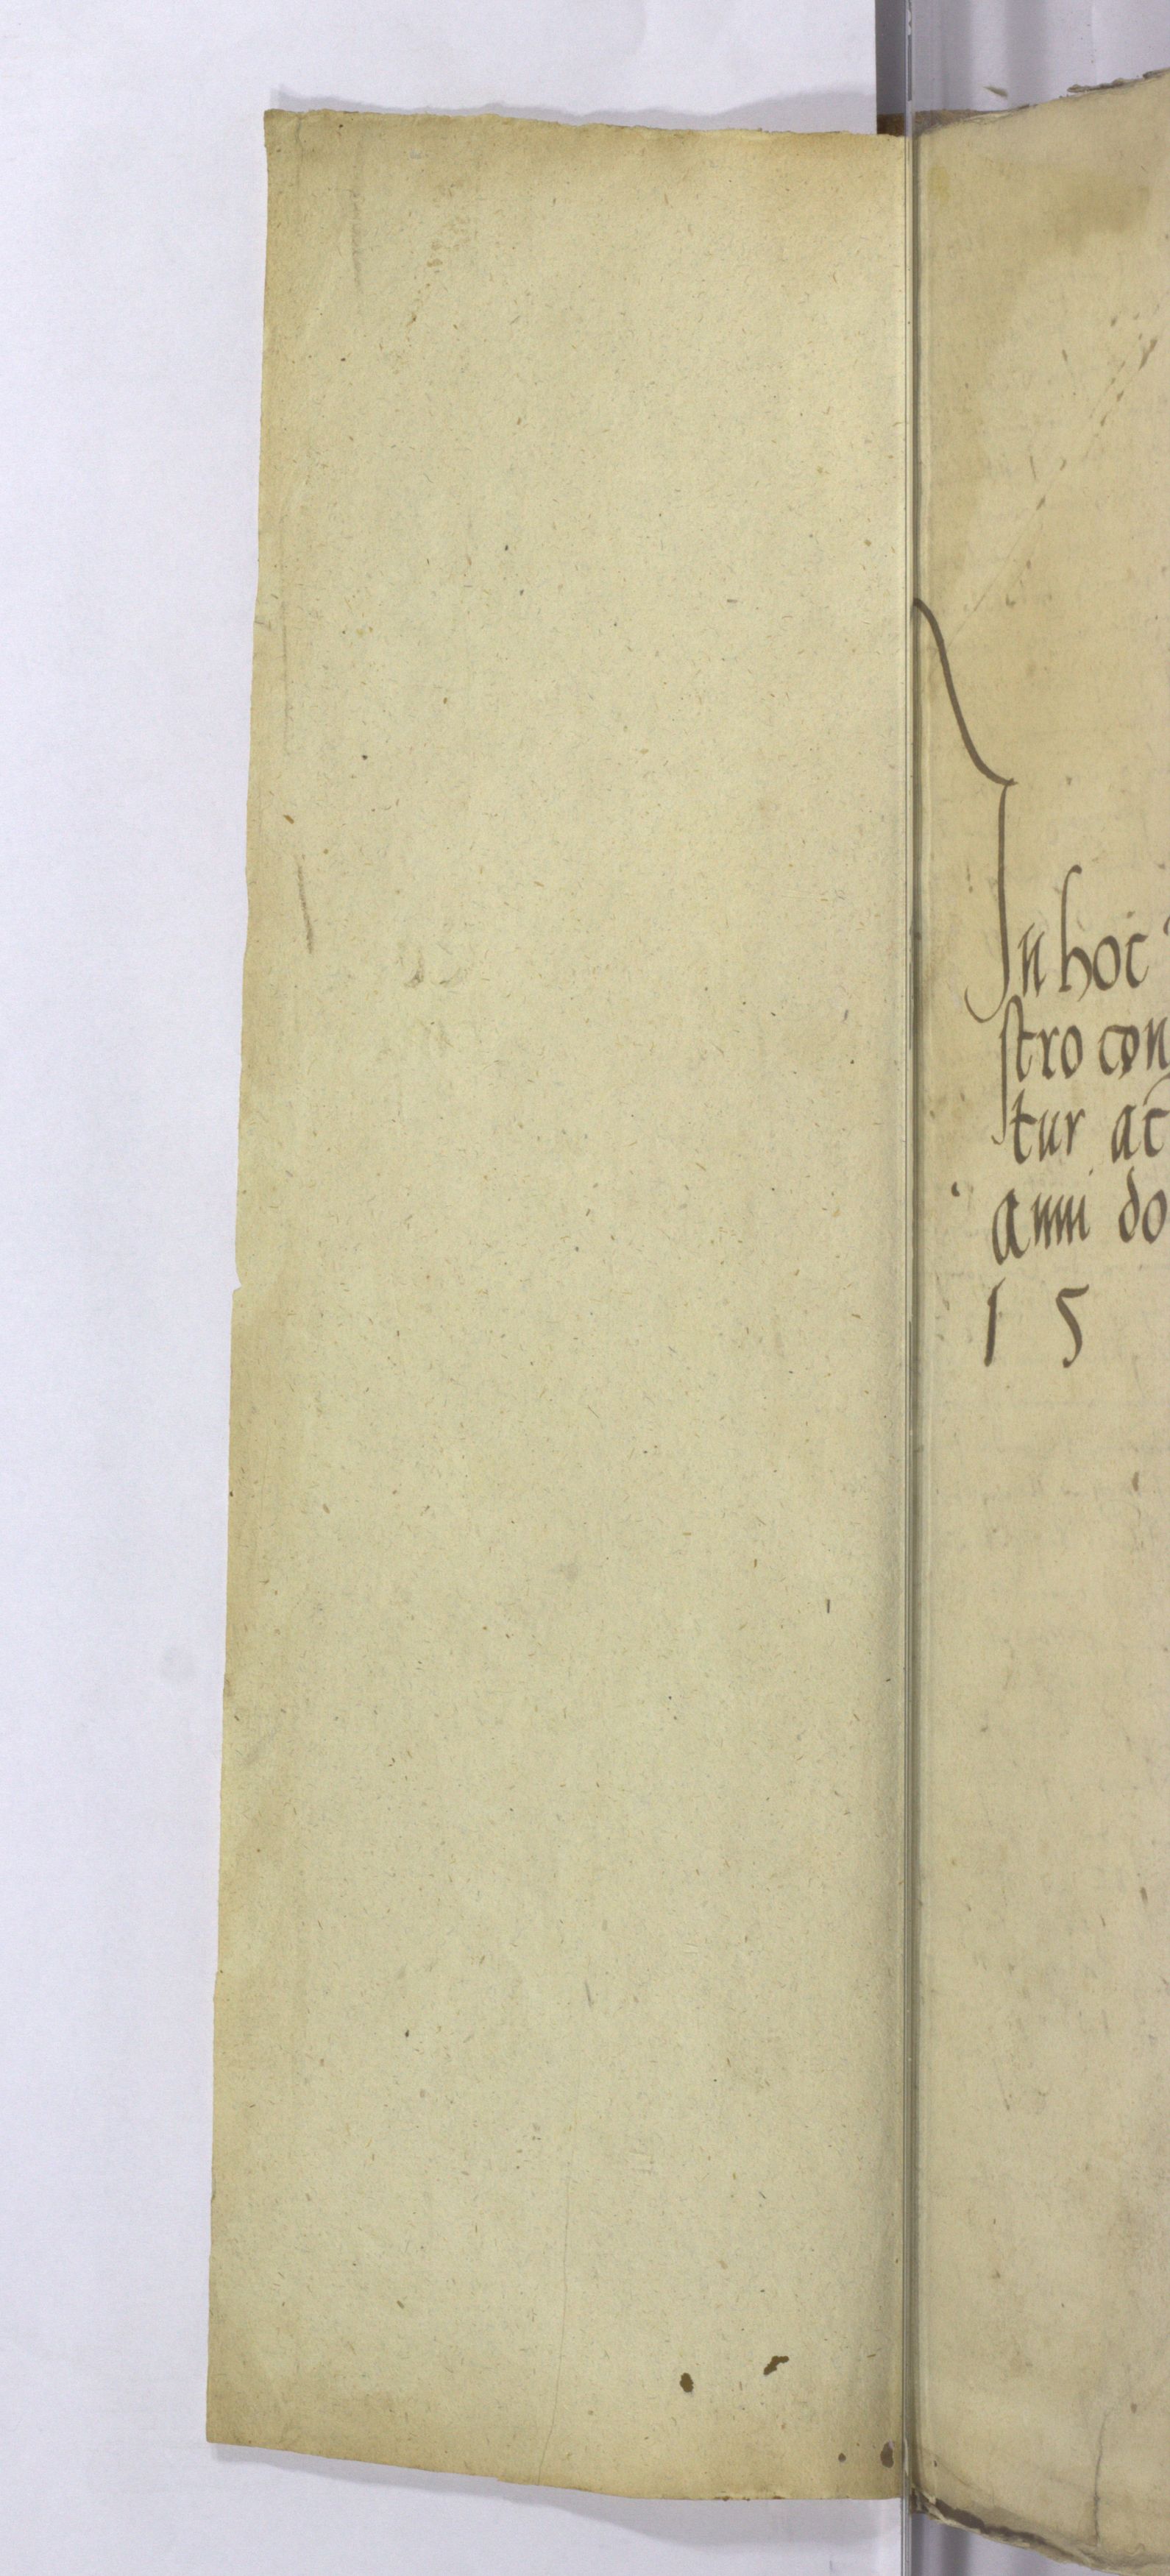 In hoc
stro con
tur ac
anni do
1 5